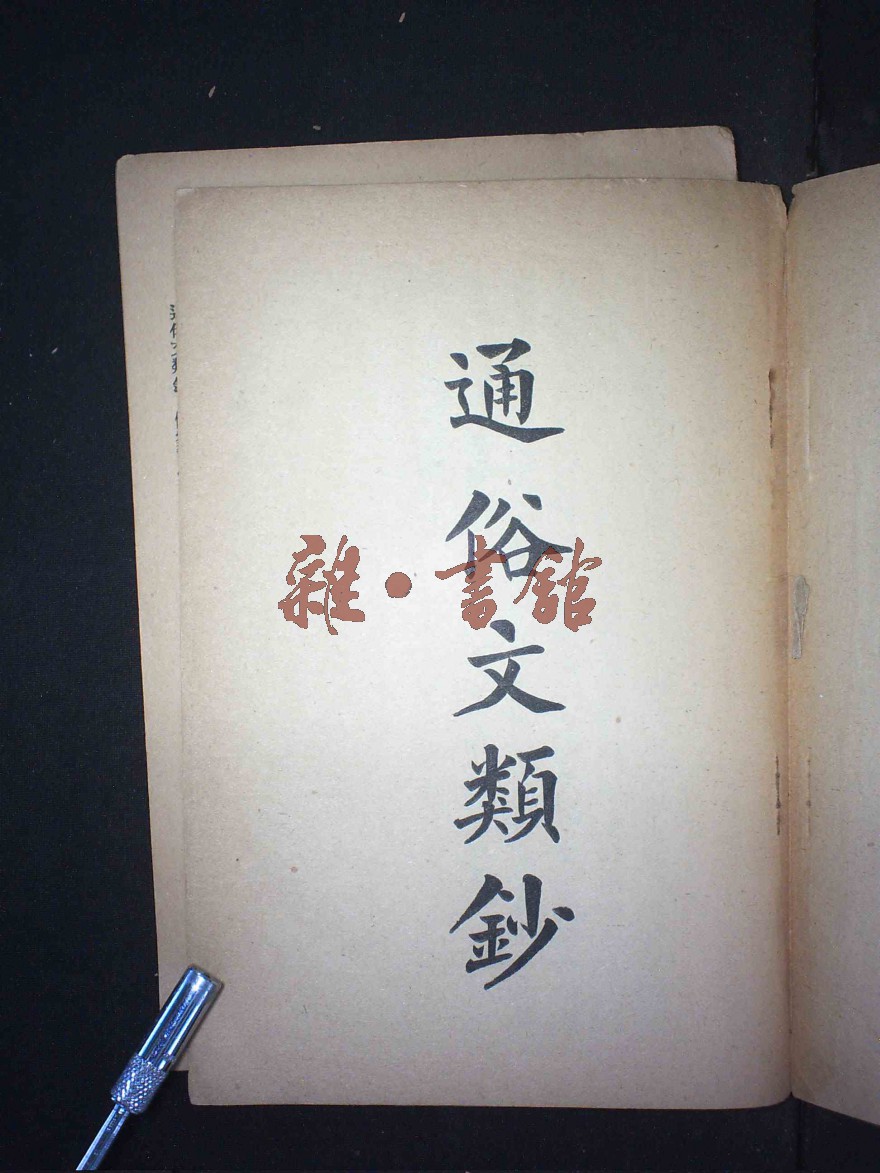 通俗文類鈔
雜·書館